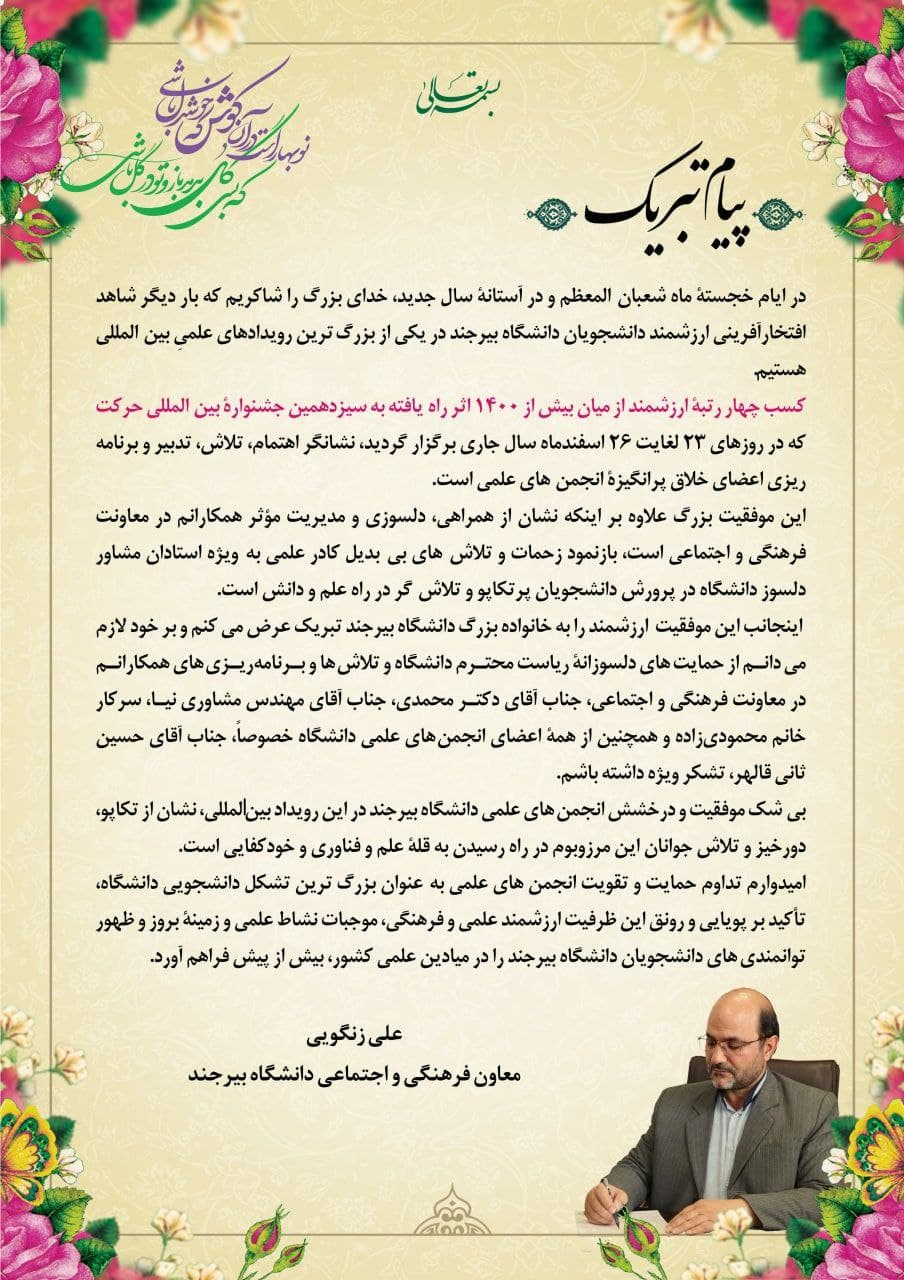 بسمه تعالی
نوبهار است در آن کوش که خوشدل باشی
که بسی گل بدمد باز و تو در گل باشی
پیام تبریک
در ایام خجستهٔ ماه شعبان المعظم و در آستانهٔ سال جدید، خدای بزرگ را شاکریم که بار دیگر شاهد
افتخارآفرینی ارزشمند دانشجویان دانشگاه بیرجند در یکی از بزرگ ترین رویدادهای علمیِ بین المللی
هستیم.
کسب چهار رتبهٔ ارزشمند از میان بیش از ۱۴۰۰ اثر راه یافته به سیزدهمین جشنوارهٔ بین المللی حرکت
که در روزهای ۲۳ لغایت ۲۶ اسفندماه سال جاری برگزار گردید، نشانگر اهتمام، تلاش، تدبیر و برنامه
ریزی اعضای خلاق پرانگیزهٔ انجمن های علمی است.
این موفقیت بزرگ علاوه بر اینکه نشان از همراهی، دلسوزی و مدیریت مؤثر همکارانم در معاونت
فرهنگی و اجتماعی است، بازنمود زحمات و تلاش های بی بدیل کادر علمی به ویژه استادان مشاور
دلسوز دانشگاه در پرورش دانشجویان پرتکاپو و تلاش گر در راه علم و دانش است.
اینجانب این موفقیت ارزشمند را به خانواده بزرگ دانشگاه بیرجند تبریک عرض می کنم و بر خود لازم
می دانـم از حمایت های دلسوزانهٔ ریاست محتـرم دانشگاه و تلاش ها و بـرنامه‌ریـزی های همکارانـم
در معاونت فرهنگی و اجتماعی، جناب آقای دکتـر محمدی، جناب آقای مهندس مشاوری نیـا، سرکار
خانم محمودی‌زاده و همچنین از همهٔ اعضای انجمن‌های علمی دانشگاه خصوصاً، جناب آقای حسین
ثانی قالهر، تشکر ویژه داشته باشم.
بی شک موفقیت و درخشش انجمن های علمی دانشگاه بیرجند در این رویداد بین‌المللی، نشان از تکاپو،
دورخیز و تلاش جوانان این مرزوبوم در راه رسیدن به قلهٔ علم و فناوری و خودکفایی است.
امیدوارم تداوم حمایت و تقویت انجمن های علمی به عنوان بزرگ ترین تشکل دانشجویی دانشگاه،
تأکید بر پویایی و رونق این ظرفیت ارزشمند علمی و فرهنگی، موجبات نشاط علمی و زمینهٔ بروز و ظهور
توانمندی های دانشجویان دانشگاه بیرجند را در میادین علمی کشور، بیش از پیش فراهم آورد.
علی زنگویی
معاون فرهنگی و اجتماعی دانشگاه بیرجند